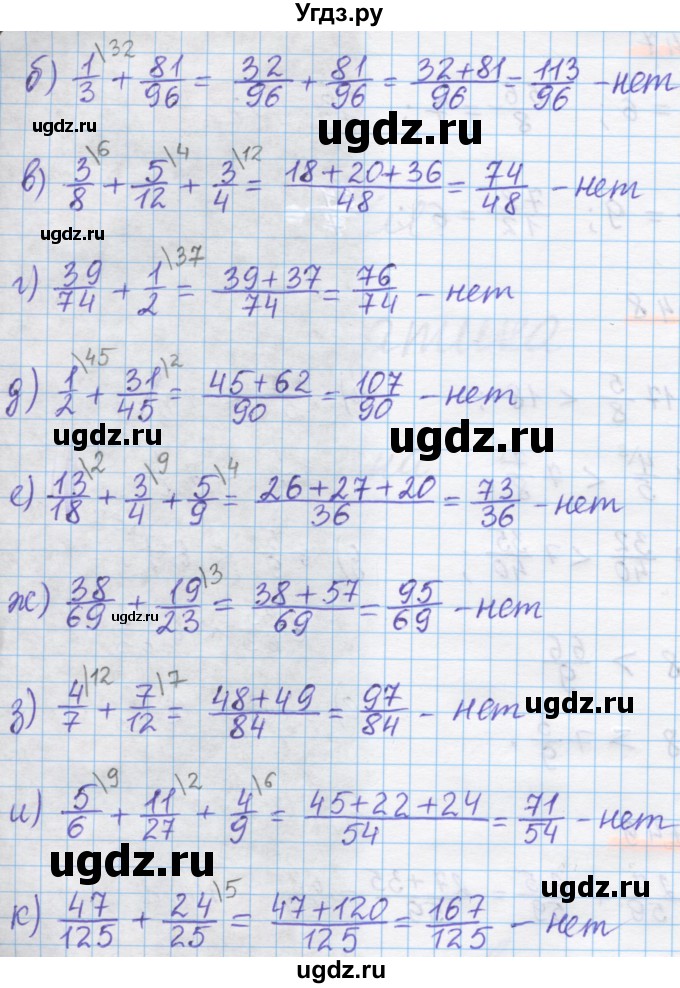 Угдз.ру
б) 1/3 \32 + 81/96 = 32/96 + 81/96 = (32+81)/96 = 113/96 - нет
ugdz.ru ugdz.ru
в) 3/8 \6 + 5/12 \4 + 3/4 \12 = (18+20+36)/48 = 74/48 - нет
ugdz.ru
г) 39/74 + 1/2 \37 = (39+37)/74 = 76/74 - нет
д) 1/2 \45 + 31/45 \2 = (45+62)/90 = 107/90 - нет
ugdz.ru ugdz.ru
е) 13/18 \2 + 3/4 \9 + 5/9 \4 = (26+27+20)/36 = 73/36 - нет
ж) 38/69 + 19/23 \3 = (38+57)/69 = 95/69 - нет
ugdz.ru
з) 4/7 \12 + 7/12 \7 = (48+49)/84 = 97/84 - нет
ugdz.ru
и) 5/6 \9 + 11/27 \2 + 4/9 \6 = (45+22+24)/54 = 71/54 - нет
ugdz.ru ugdz.ru
к) 47/125 + 24/25 \5 = (47+120)/125 = 167/125 - нет
ugdz.ru